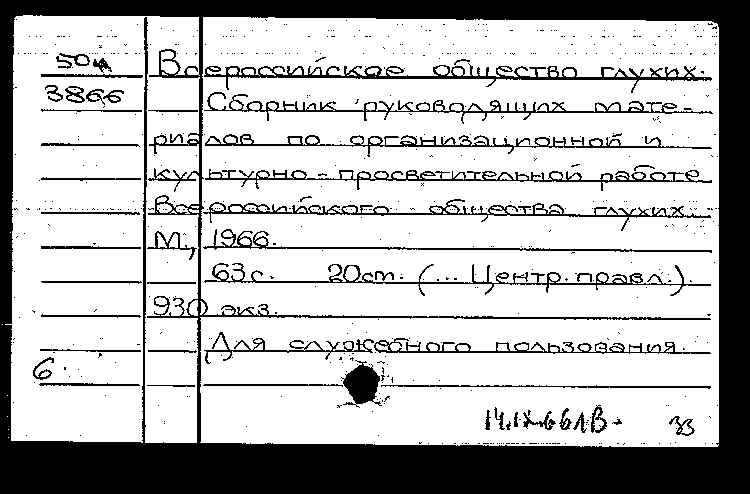 Всероссийское общество глухих.
3866
Сборник руководящих мате-
риалов по организационной и
культурно-просветительной работе
Всероссийского общества глухих.
М., 1966.
63с. 20см. (... Центр. правл.).
930 экз.
Для служебного пользования.
6.
33